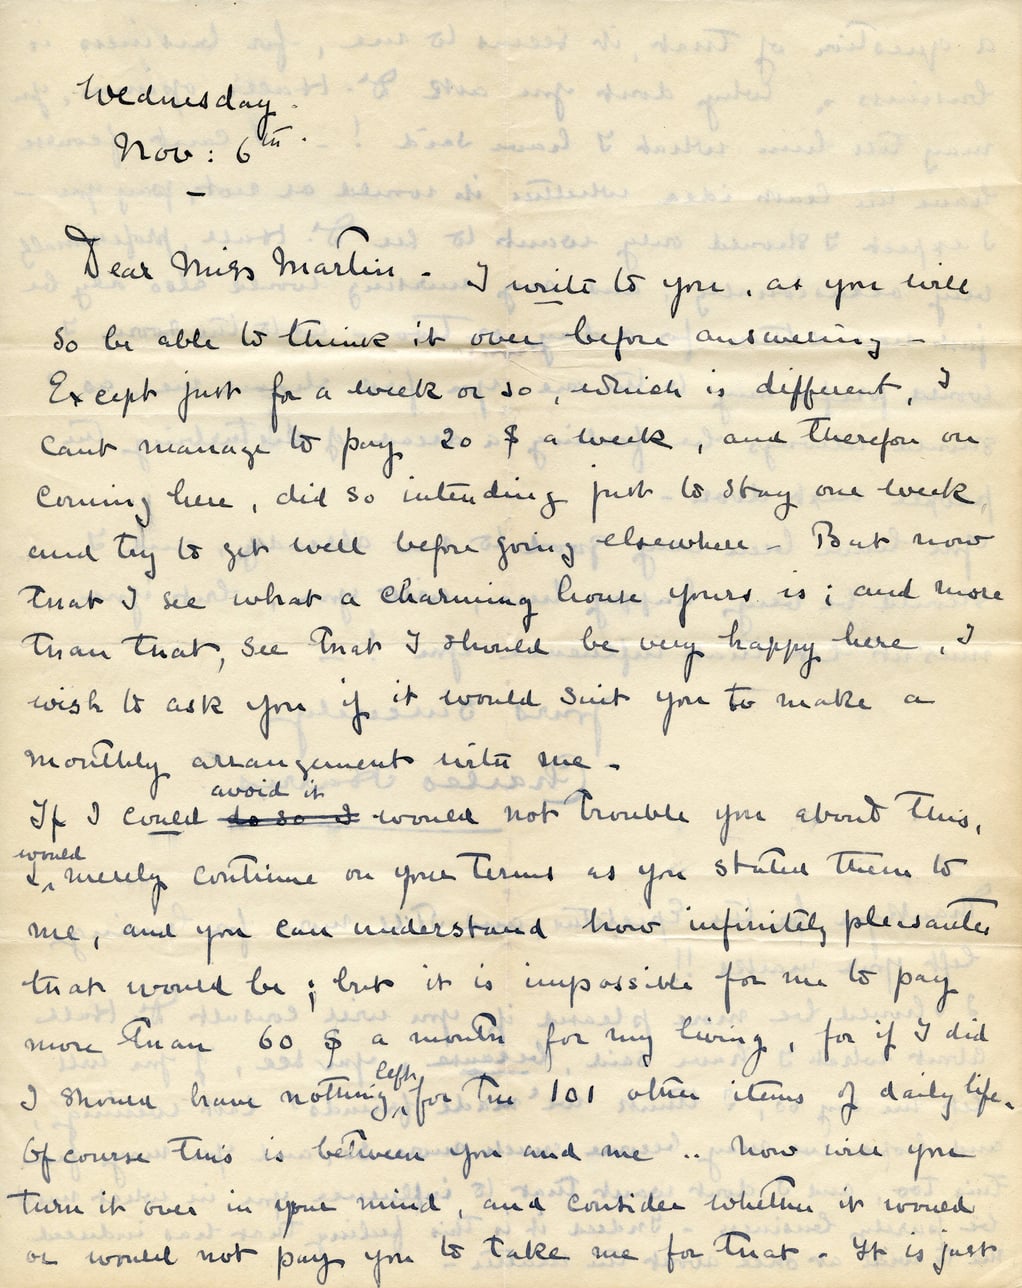 Wednesday.
Nov: 6th.
Dear Miss Martin - I write to you, as you will
so be able to think it over before answering -
Except just for a week or so, which is different, I
cant manage to pay 20 $ a week, and therefor on
coming here, did so intending just to stay one week
and try to get well before going elsewhere - But now
that I see what a charming house yours is; and more
than that, see that I should be very happy here, I
wish to ask you if it would suit you to make a
monthly arrangement with me -
avoid it
If I could do so I would not trouble you about this,
would
I merely continue on your terms as you stated them to
me, and you can understand how infinitely pleasanter
that would be; but it is impossible for me to pay
more than 60 $ a month for my living, for if I did
left
I should have nothing for the 101 other items of daily life.
Of course this is between you and me .. now will you
turn it over in your mind, and consider whether it would
or would not pay you to take me for that. It is just